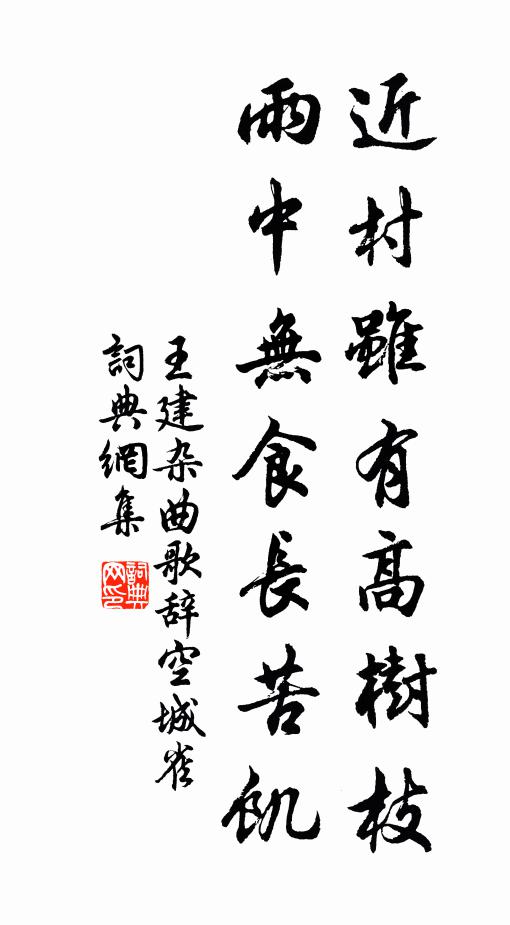 近村雖有高樹枝
雨中無食長苦飢
王建杂曲歌辞空城雀
詞典網集
詞典网印